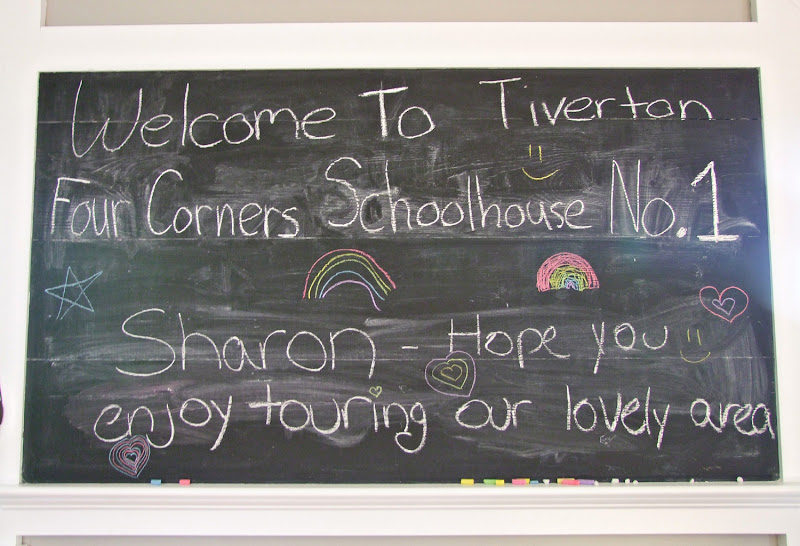 Welcome To Tiverton
Four Corners Schoolhouse No. 1
Sharon - Hope you
enjoy touring our lovely area